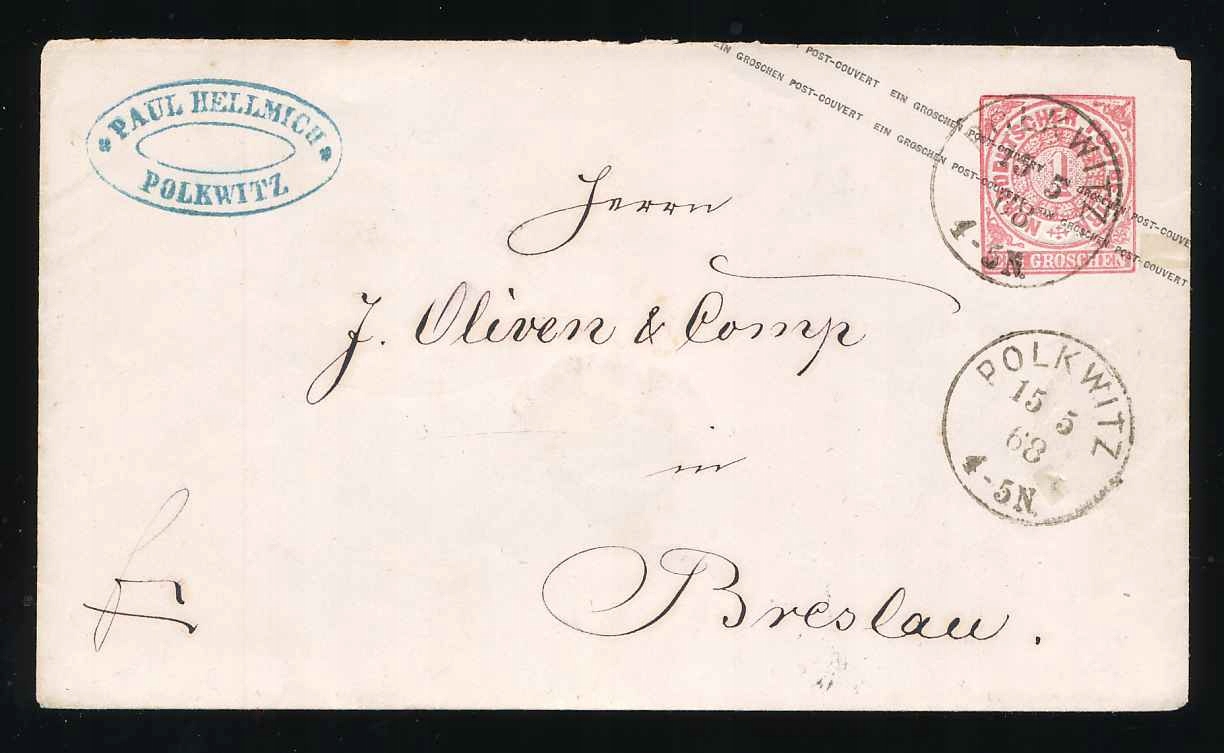 PAUL HELLMICH
POLKWITZ
EIN GROSCHEN POST-COUVERT EIN GROSCHEN POST-COUVERT EIN GROSCHEN POST-COUVERT
EIN GROSCHEN POST-COUVERT EIN GROSCHEN POST-COUVERT EIN GROSCHEN POST-COUVERT
1
GROSCHEN
POLKWITZ
15 5
68
4-5N.
Herrn
J. Oliven & Comp
in
Breslau.
POLKWITZ
15 5
68
4-5N.